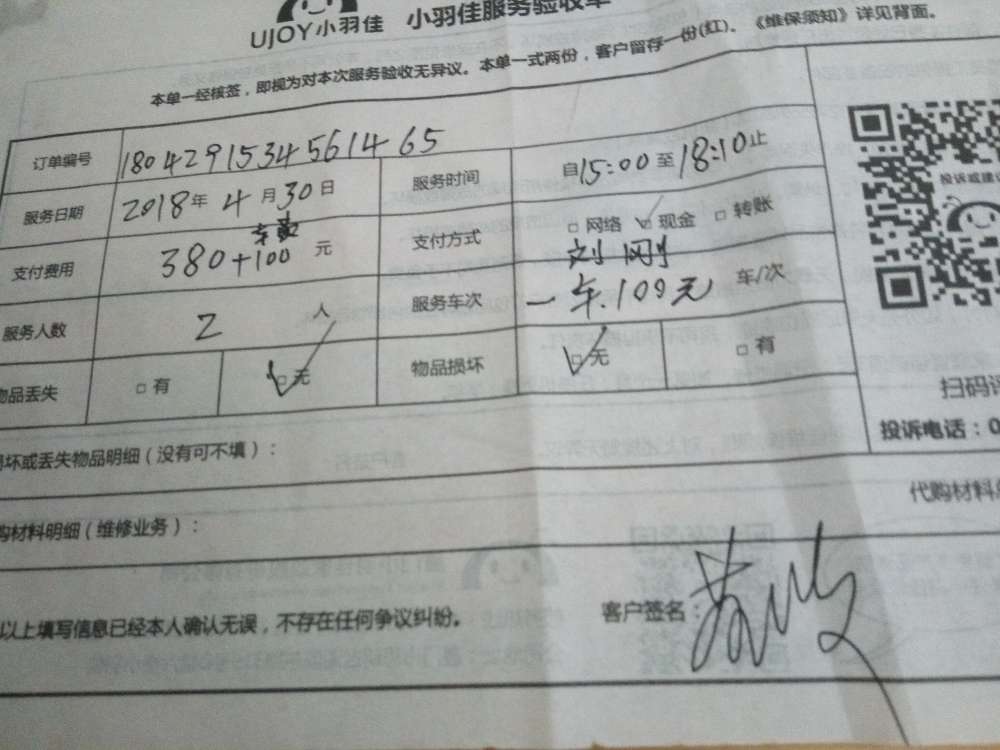 UJOY小羽佳 小羽佳服务验收单
本单一经核签，即视为对本次服务验收无异议。本单一式两份，客户留存一份(红)。《维保须知》详见背面。
订单编号 180429153456144 65
服务时间 自15:00至18:10止
服务日期 2018年4月30日
支付方式 □网络 ☑现金 □转账
支付费用 380+100元
车费
刘刚
服务人数 2人
服务车次 一车.100元 车/次
物品丢失 □有 ☑无
物品损坏 ☑无 □有
坏或丢失物品明细（没有可不填）：
购材料明细（维修业务）：
以上填写信息已经本人确认无误，不存在任何争议纠纷。
客户签名：
投诉或建议
扫码评
投诉电话：0
代购材料